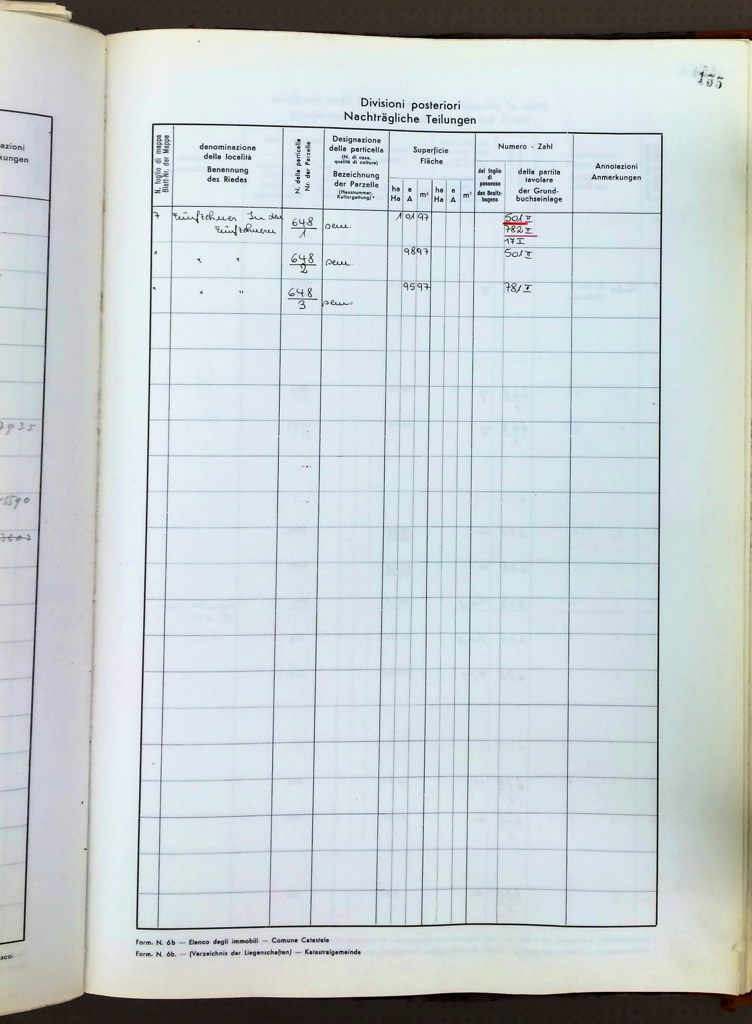 155
Divisioni posteriori
Nachträgliche Teilungen
N. foglio di mappa
Blatt-Nr. der Mappe
denominazione
della località
Benennung
des Riedes
N. della particella
Nr. der Parzelle
Designazione
della particella
(N. di casa,
qualità di coltura)
Bezeichnung
der Parzelle
(Hausnummer,
Kulturgattung)
Superficie
Fläche
ha a m² ha a m²
Ha A Ha A
Numero - Zahl
del foglio
di
possesso
des Besitz-
bogens
della partita
tavolare
der Grund-
buchseinlage
Annotazioni
Anmerkungen
7 Fünfzehner In den 648/1 sem. 1 01 97 501 II
Fünfzehnern 782 II
17 I
" " " 648/2 sem. 98 97 501 II
" " " 648/3 sem. 95 97 781 II
Form. N. 6b — Elenco degli immobili — Comune Catastale
Form. N. 6b. — (Verzeichnis der Liegenschaften) — Katastralgemeinde
azioni
kungen
7935
5590
3607
sco.